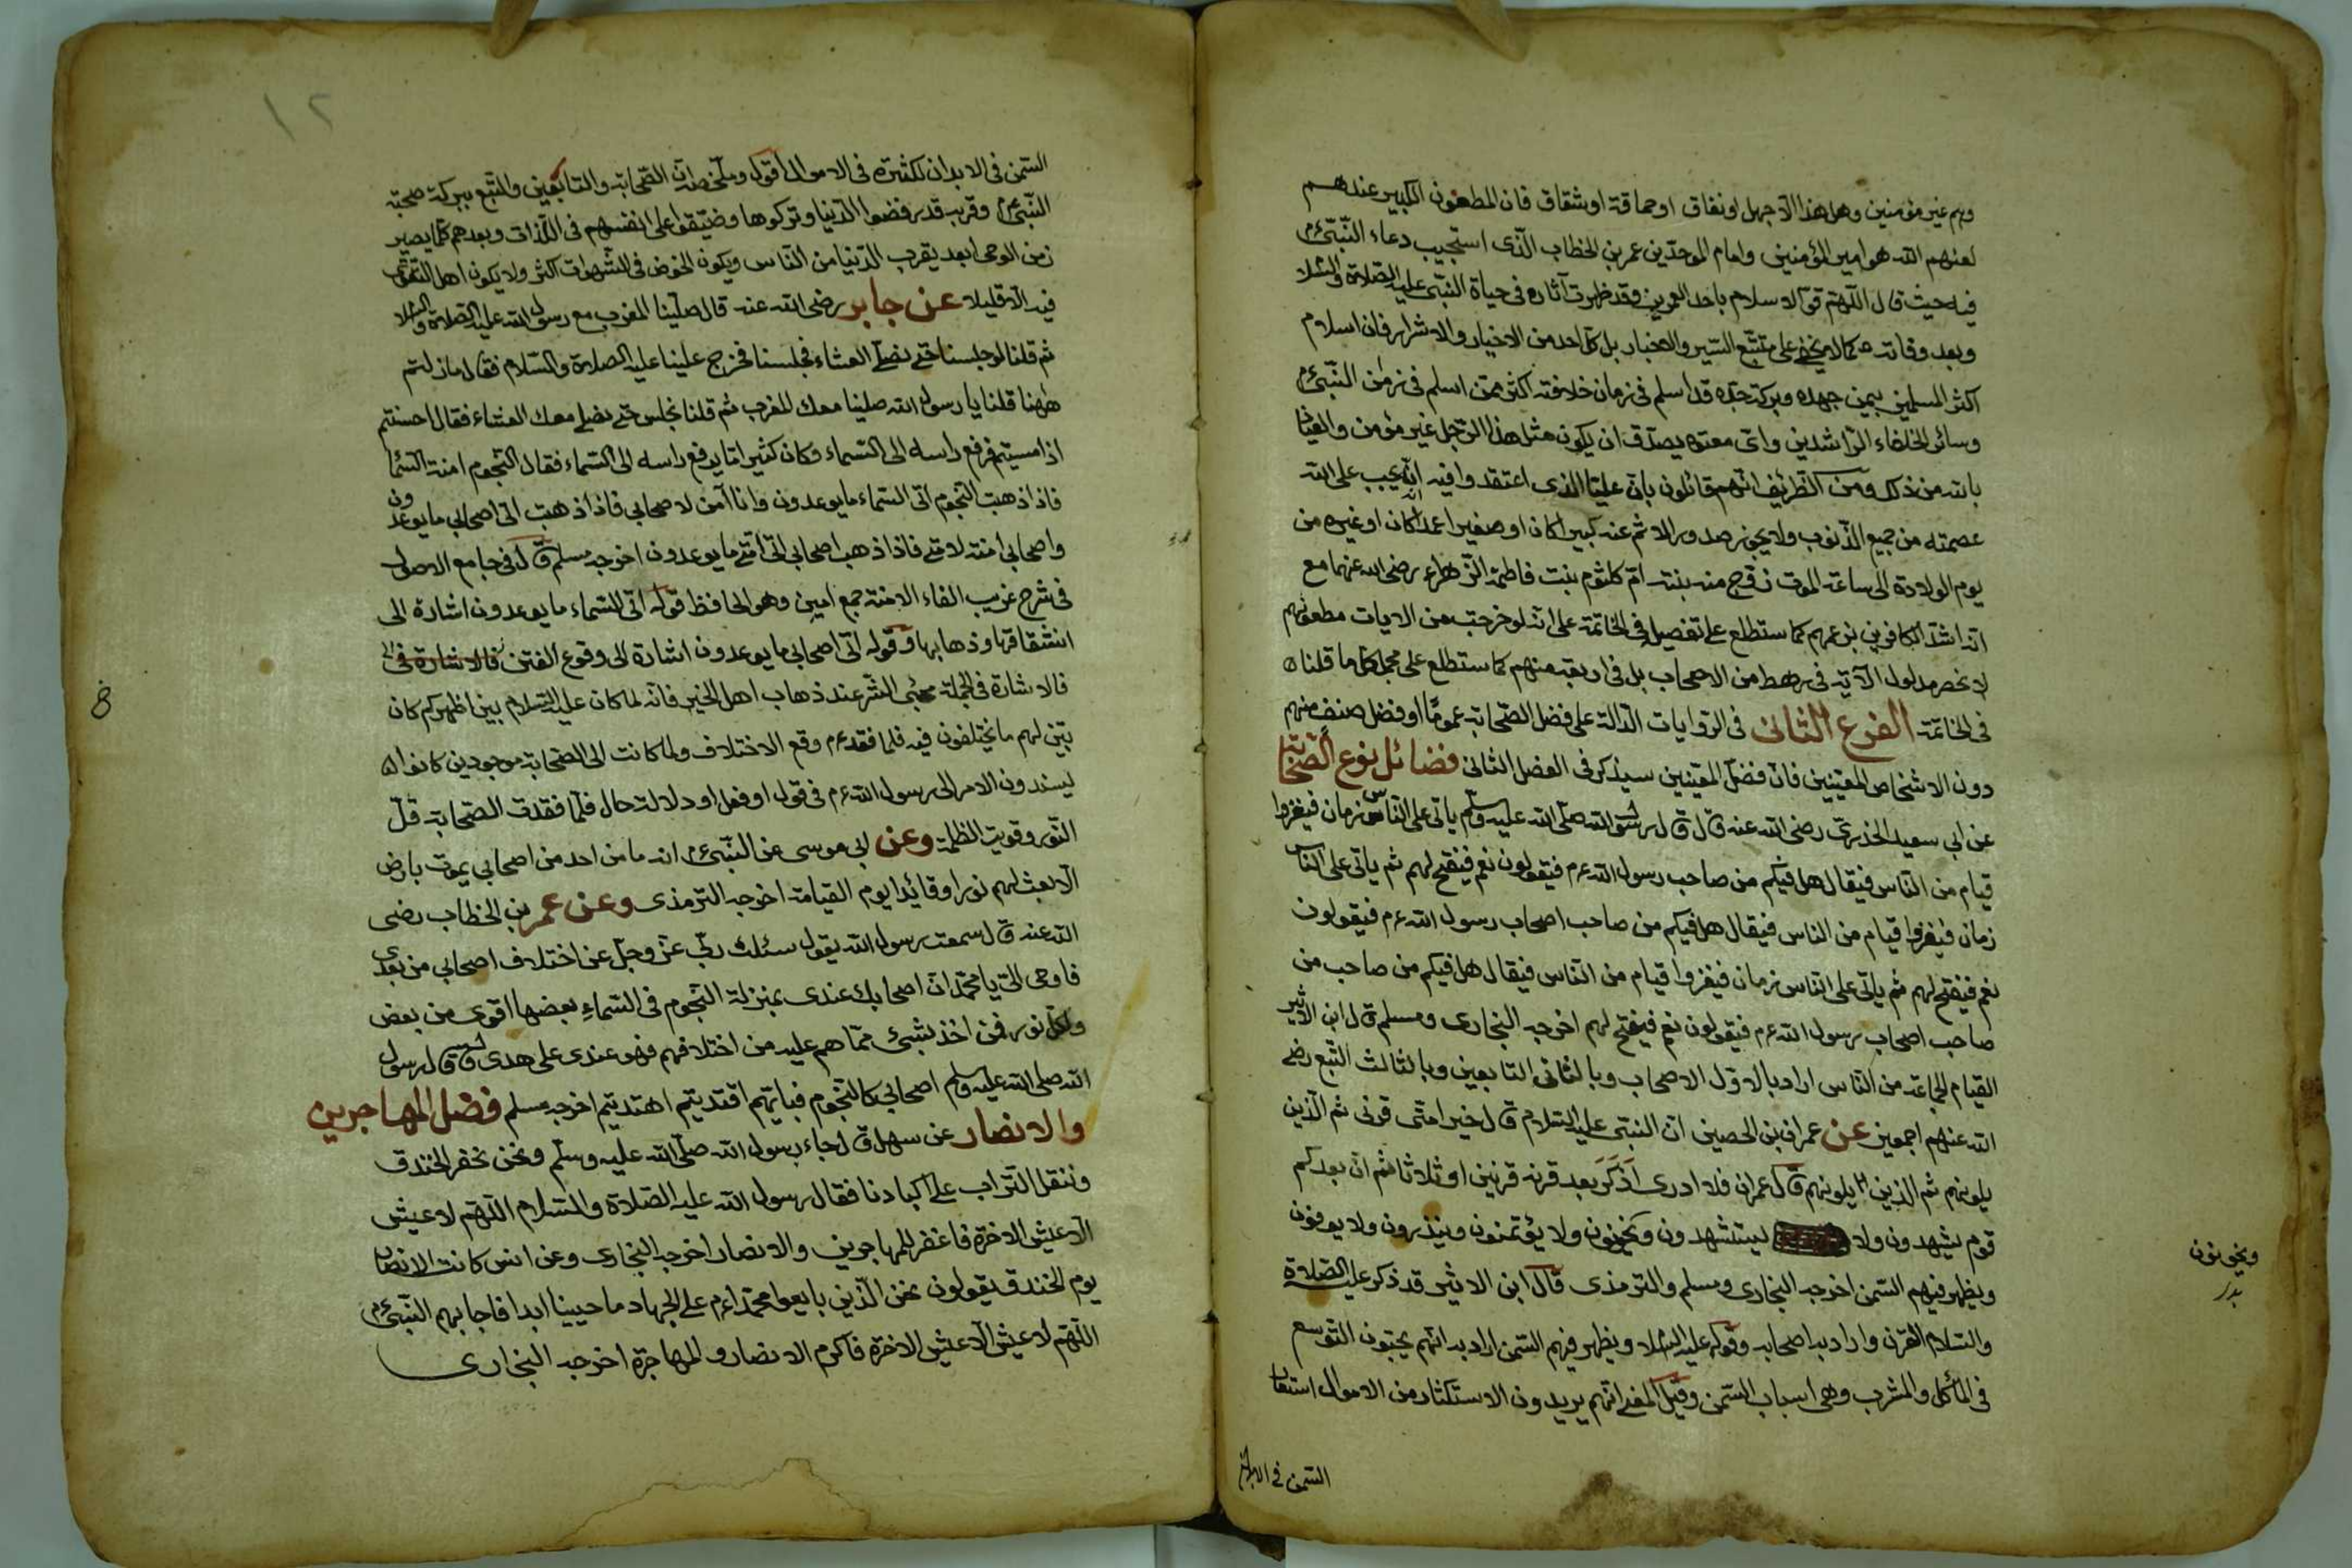 وهم غير مؤمنين وهل هذا الا جهل او نفاق او حماقة او شقاق فان المطعون الكبير عندهم
لعنهم الله هو امير المؤمنين وامام الموحدين عمر بن الخطاب الذى استجيب دعاء النبىء م
فيه حيث قال اللهم قو الاسلام باحد العمرين وقد ظهرت آثاره فى حياة النبى عليه الصلاة والسلا
وبعد وفاته كما لا يخفى على متتبع السير والاخبار بل كل احد من الاخيار والاشرار فان اسلام
اكثر المسلمين بيمن جهده وبركة جده قد اسلم فى زمان خلافته اكثر ممن اسلم فى زمن النبىء م
وسائر الخلفاء الراشدين واى معتوه يصدق ان يكون مثل هذا الرجل غير مؤمن والعياذ
بالله من ذلك ومن الظرئف انهم قائلون بان عليا الذى اعتقدوا فيه انه يجب على الله
عصمته من جميع الذنوب ولا يجوز صدور الاثم عنه كبيرا كان او صغيرا عمدا كان او غيره من
يوم الولادة الى ساعة الموت زوج منه بنته ام كلثوم بنت فاطمة الزهراء رضى الله عنهما مع
انه اشد الكافرين بزعمهم كما ستطلع على تفصيله فى الخاتمة على انه لو خرجت من الايات مطعونهم
لا نحصر مدلول الآية فى رهط من الاصحاب بل فى اربعة منهم كما ستطلع على مجمل ما قلنا
فى الخاتمة الفرع الثانى فى الروايات الدالة على فضل الصحابة عموما او فضل صنف منهم
دون الاشخاص المعينين فان فضل المعينين سيذكر فى الفصل الثانى فضائل نوع الصحابة
عن ابى سعيد الخدرى رضى الله عنه قال قال رسول الله صلى الله عليه وسلم ياتى على الناس زمان فيغزوا
قيام من الناس فيقال هل فيكم من صاحب رسول الله عم فيقولون نعم فيفتح لهم ثم ياتى على الناس
زمان فيغزوا قيام من الناس فيقال هل فيكم من صاحب اصحاب رسول الله عم فيقولون
نعم فيفتح لهم ثم ياتى على الناس زمان فيغزوا قيام من الناس فيقال هل فيكم من صاحب من
صاحب اصحاب رسول الله عم فيقولون نعم فيفتح لهم اخرجه البخارى ومسلم قال ابن الاثير
القيام الجماعة من الناس اراد بالاول الاصحاب وبالثانى التابعين وبالثالث التبع رضى
الله عنهم اجمعين عن عمران بن الحصين ان النبى عليه السلام قال خير امتى قرنى ثم الذين
يلونهم ثم الذين يلونهم قال عمران فلا ادرى اذكر بعد قرنه قرنين او ثلاثا ثم ان بعدكم
قوم يشهدون ولا يستشهدون ويخونون ولا يؤتمنون وينذرون ولا يوفون
ويظهر فيهم السمن اخرجه البخارى ومسلم والترمذى قال ابن الاثير قد ذكر عليه الصلاة
والسلام القرن واراد به اصحابه وقوله عليه السلا ويظهر فيهم السمن اراد به انهم يحبون التوسع
فى المأكل والمشرب وهى اسباب السمن وقيل المعنى انهم يريدون الاستكثار من الاموال استعار
السمن فى الابدان
ويخونون
بدر
١٢
السمن فى الابدان لكثرة فى الاموال اقول وملخصه ان الصحابة والتابعين والتبع ببركة صحبة
النبىء م وقربه قد رفضوا الدنيا وتركوها وضيقوا على انفسهم فى اللذات وبعدهم كلما يصير
زمن الوحى ابعد يقرب الدنيا من الناس ويكون الخوض فى الشهوات اكثر ولا يكون اهل التقوى
فيه الا قليلا عن جابر رضى الله عنه قال صلينا المغرب مع رسول الله عليه الصلاة والسلا
ثم قلنا لو جلسنا حتى نصلى العشاء فجلسنا فخرج علينا عليه الصلاة والسلام فقال ما زلتم
ههنا قلنا يا رسول الله صلينا معك المغرب ثم قلنا نجلس حتى نصلى معك العشاء فقال احسنتم
اذ امسيتم فرفع راسه الى السماء وكان كثيرا ما يرفع راسه الى السماء فقال النجوم امنة السما
فاذا ذهبت النجوم اتى السماء ما يوعدون وانا آمن لاصحابى فاذا ذهبت اتى اصحابى ما يوعدون
واصحابى امنة لامتى فاذا ذهب اصحابى اتى امتى ما يوعدون اخرجه مسلم قال فى جامع الاصول
فى شرح غريب الفاء الامنة جمع امين وهو الحافظ قوله اتى السماء ما يوعدون اشارة الى
انشقاقها وذهابها وقوله اتى اصحابى ما يوعدون اشارة الى وقوع الفتن فالاشارة فى ال
فالاشارة فى الجملة مجئ الشر عند ذهاب اهل الخير فانه لما كان عليه السلام بين اظهركم كان
يبين لهم ما يختلفون فيه فلما فقد عم وقع الاختلاف ولما كانت الى الصحابة موجودين كانوا
يسندون الامر الى رسول الله عم فى قول او فعل او دلالة حال فلما فقدت الصحابة قل
النور وقويت الظلمة وعن ابى موسى عن النبىء م انه ما من احد من اصحابى يموت بارض
الا بعث لهم نورا وقائدا يوم القيامة اخرجه الترمذى وعن عمر بن الخطاب رضى
الله عنه قال سمعت رسول الله يقول سئلت ربى عز وجل عن اختلاف اصحابى من بعدى
فاوحى الى يا محمد ان اصحابك عندى بمنزلة النجوم فى السماء بعضها اقوى من بعض
ولكل نور فمن اخذ بشىء مما هم عليه من اختلافهم فهو عندى على هدى وقال رسول
الله صلى الله عليه وسلم اصحابى كالنجوم فبايهم اقتديتم اهتديتم اخرجه مسلم فضل المهاجرين
والانصار عن سهل قال جاء رسول الله صلى الله عليه وسلم ونحن نحفر الخندق
وننقل التراب على اكبادنا فقال رسول الله عليه الصلاة والسلام اللهم لا عيش
الا عيش الاخرة فاغفر للمهاجرين والانصار اخرجه البخارى وعن انس كانت الانصار
يوم الخندق يقولون نحن الذين بايعوا محمدا عم على الجهاد ما حيينا ابدا فاجابهم النبىء م
اللهم لا عيش الا عيش الاخرة فاكرم الانصار والمهاجرة اخرجه البخارى